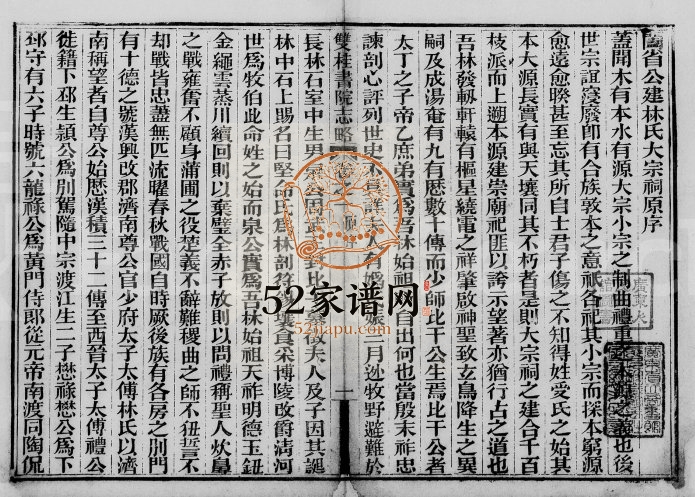 省公建林氏大宗祠原序
蓋聞木有本水有源大宗小宗之制曲禮重之本源之義也後
世宗誼寖廢卽有合族敦本之意祇各祀其小宗而探本窮源
愈遠愈暌甚至忘其所自士君子傷之不知得姓受氏之始其
本大源長實有與天壤同其不朽者是則大宗祠之建合千百
枝派而上遡本源建崇廟祀匪以誇示望著亦猶行古之道也
吾林發軔軒轅有樞星繞電之祥肇啟神聖致玄鳥降生之異
嗣及成湯奄有九有歷數十傳而少師比干公生焉比干公者
太丁之子帝乙庶弟實爲吾林始祖自出何也當殷末祚忠
諫剖心評列世史不具詳夫人有娠三月迯牧野避難於
長林石室中生男泉公因徵夫人及子因其誕
林中石上賜名曰堅命氏爲林剖符食采博陵改爵清河
世爲牧伯此命姓之始而泉公實爲吾林始祖天祚明德玉鈕
金繩雲蒸川續回則以棄璧全赤子放則以問禮稱聖人炊鼻
之戰雍奮不顧身蒲圃之役楚義不辭難稷曲之師不狃誓不
却戰皆忠藎無匹流曜春秋戰國自時厥後族有各房之別門
有十德之號漢興改郡濟南尊公官少府太子太傅林氏以濟
南稱望者自尊公始歷漢積三十二傳至西晉太子太傅禮公
徙籍下邳生頴公爲別駕隨中宗渡江生二子懋祿懋公爲下
邳守有六子時號六龍祿公爲黃門侍郎從元帝南渡同陶侃
雙桂書院志略
卷之
一
52家谱网
52jiapu.com